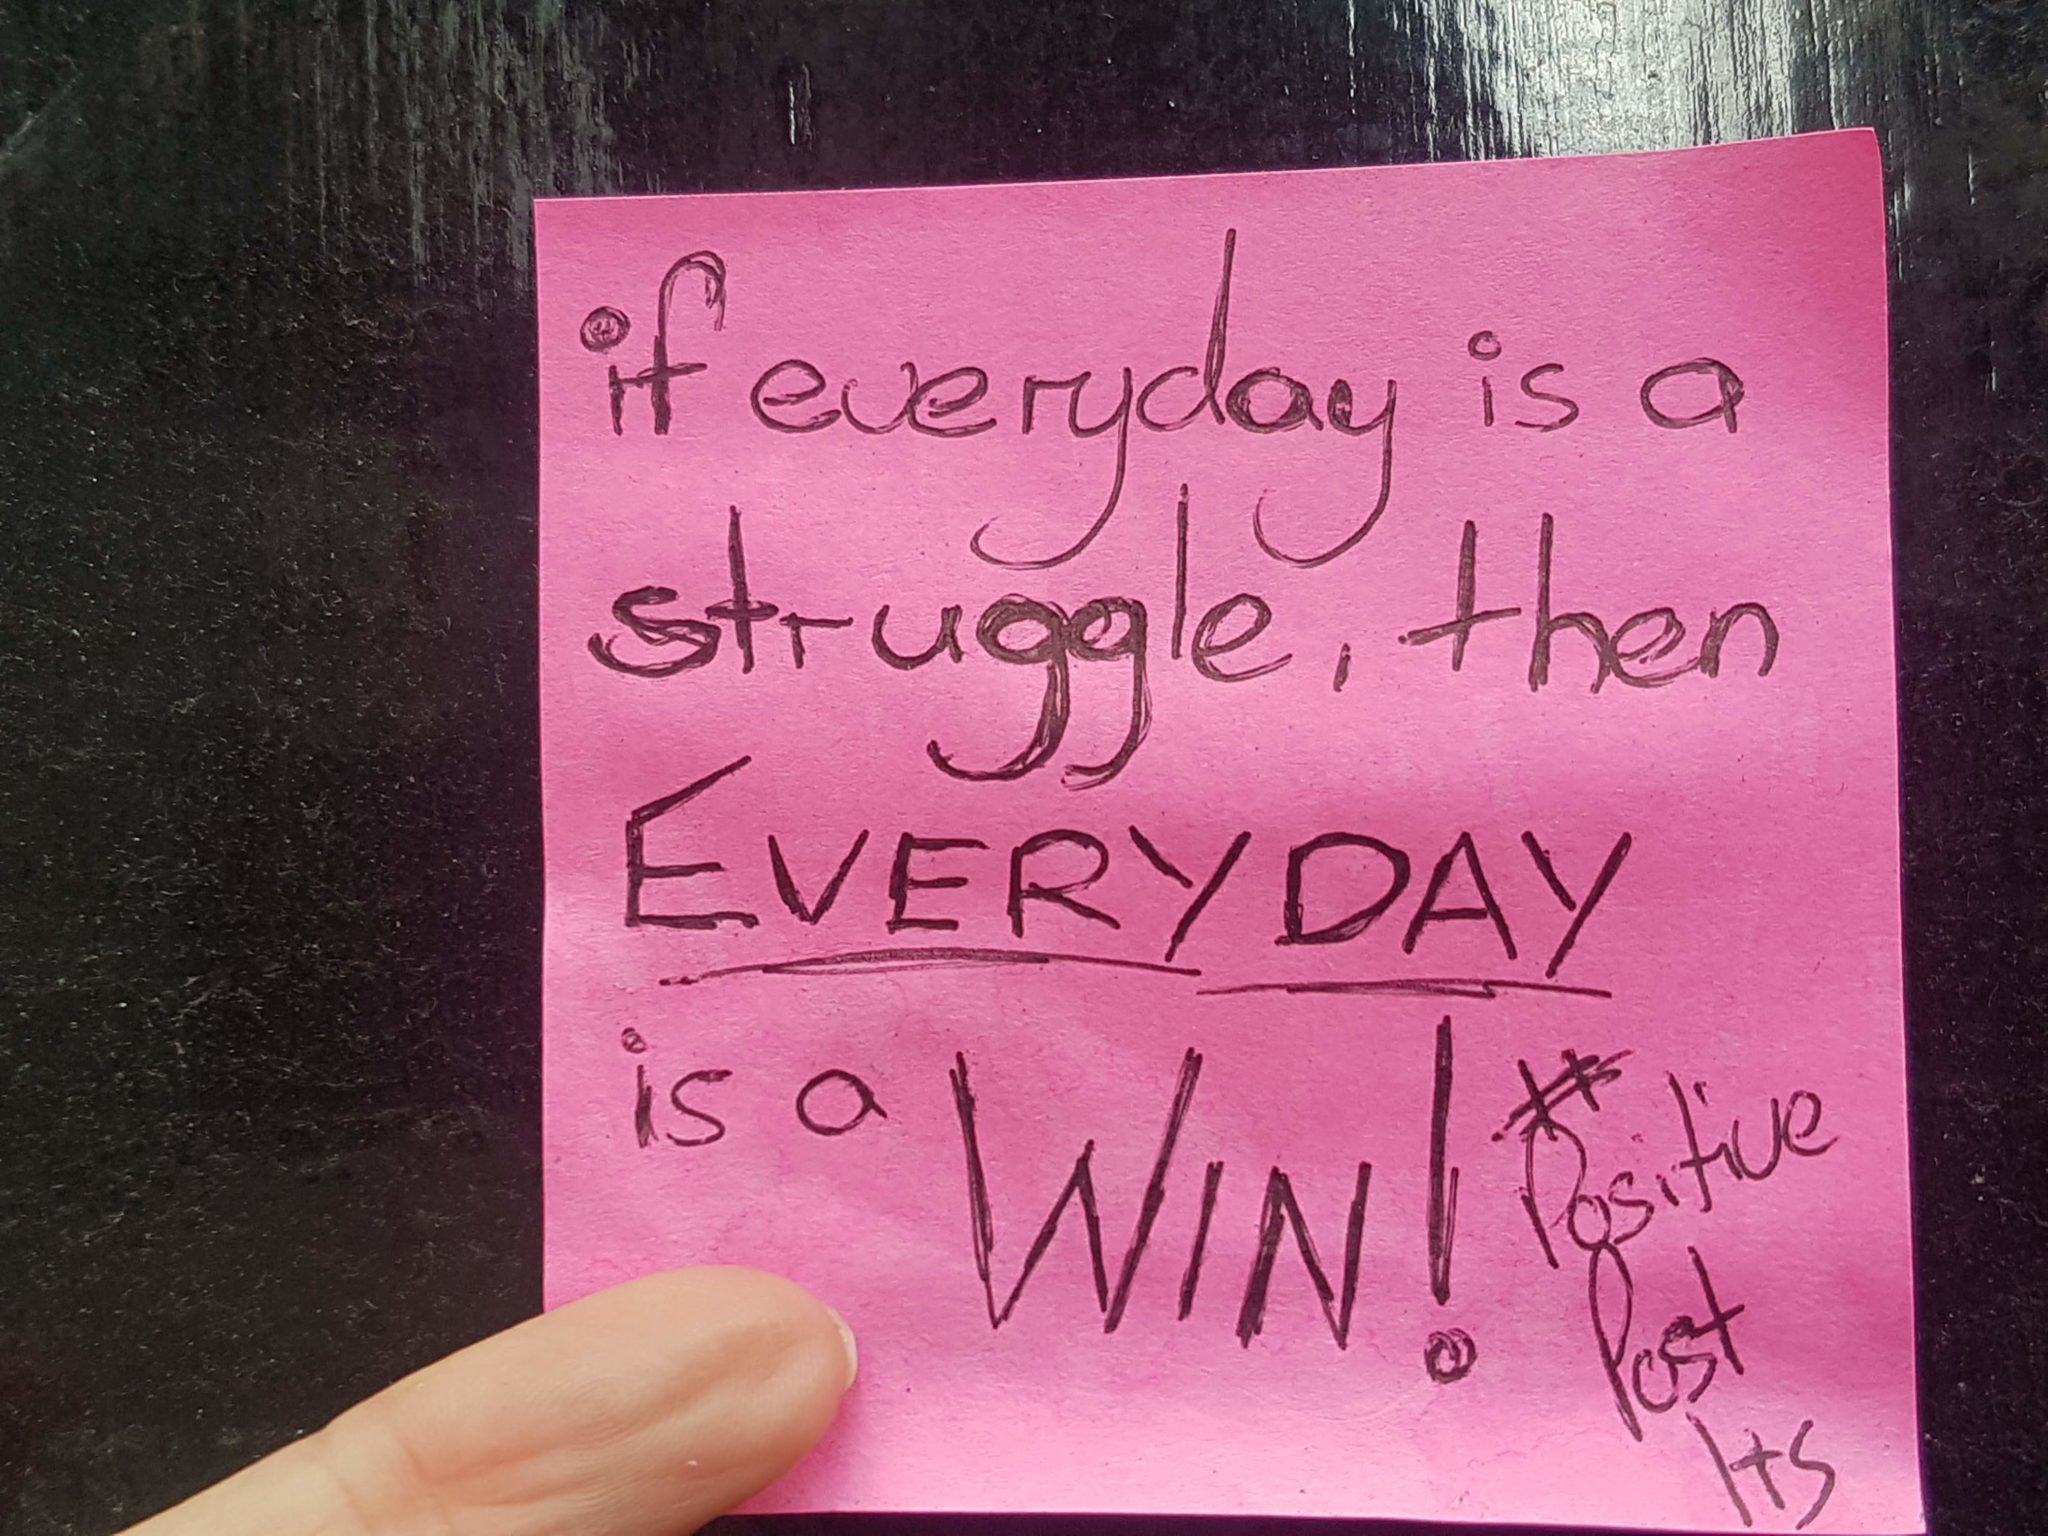 if everyday is a
struggle, then
EVERYDAY
is a WIN!
#
Positive
Post
Its